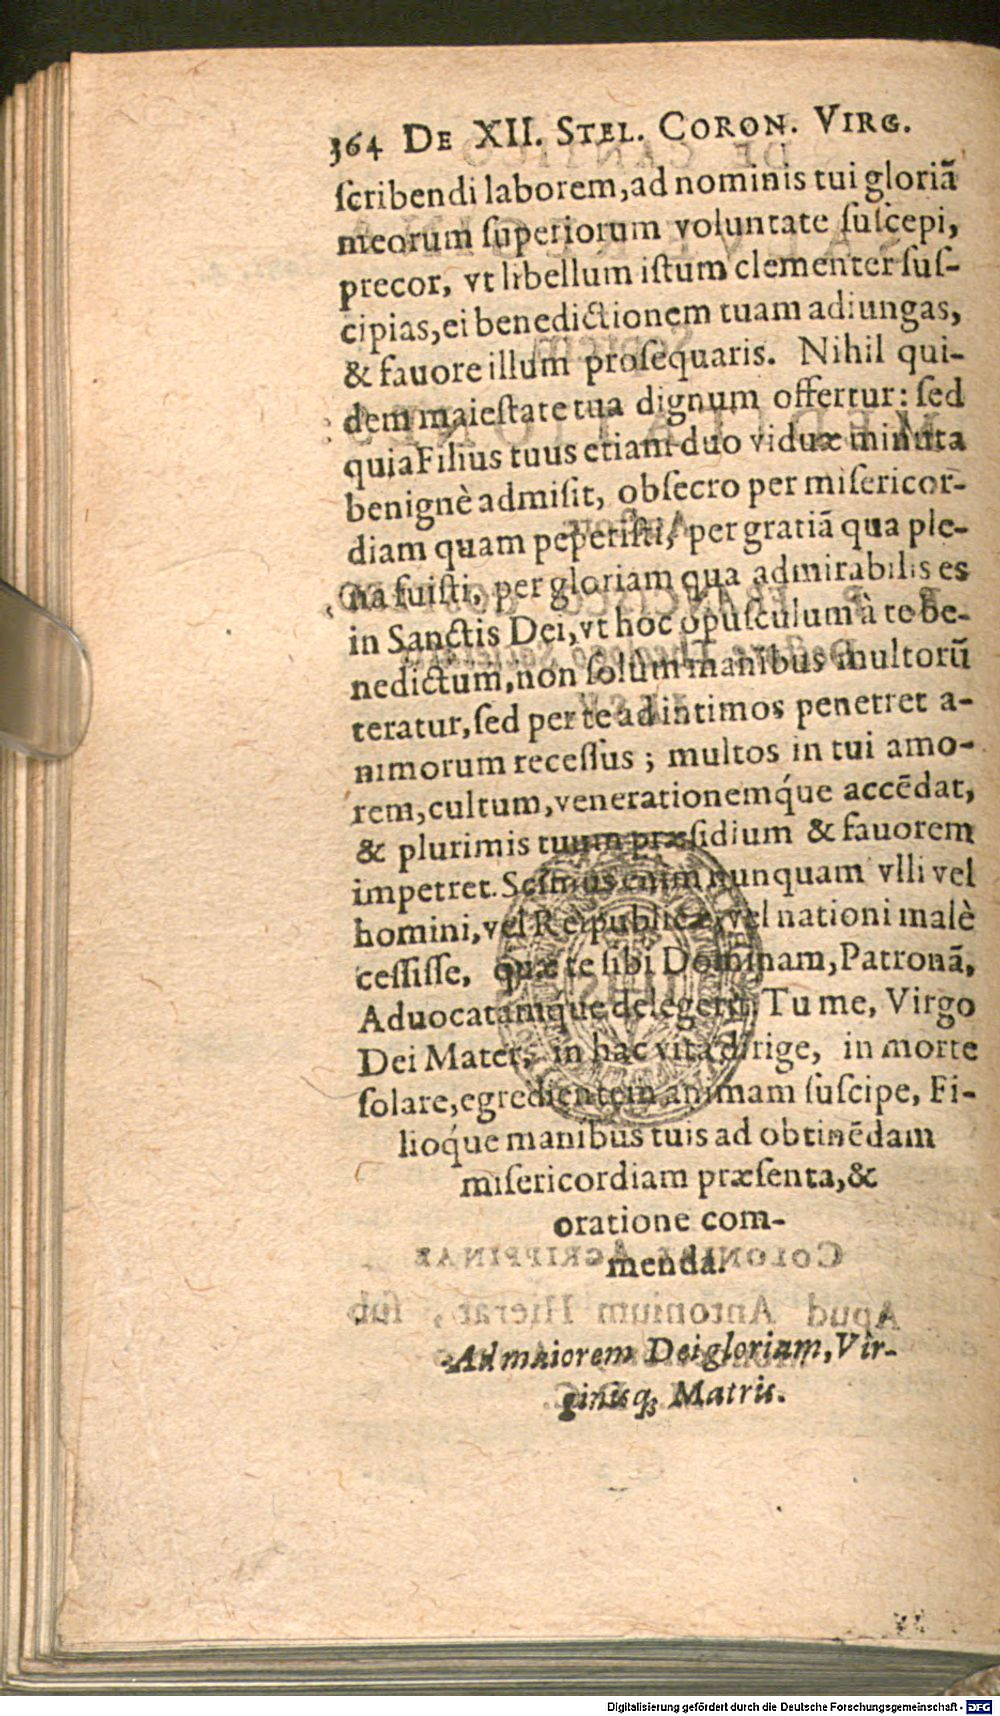 364 DE XII. STEL. CORON. VIRG.
ſcribendi laborem, ad nominis tui gloriã
meorum ſuperiorum voluntate ſuſcepi,
precor, vt libellum iſtum clementer ſuſ-
cipias, ei benedictionem tuam adiungas,
& fauore illum proſequaris. Nihil qui-
dem maieſtate tua dignum offertur: ſed
quia Filius tuus etiam duo viduæ minuta
benignè admiſit, obſecro per miſericor-
diam quam peperiſti, per gratiã qua ple-
na fuiſti, per gloriam qua admirabilis es
in Sanctis Dei, vt hoc opuſculum à te be-
nedictum, non ſolum manibus multorũ
teratur, ſed per te ad intimos penetret a-
nimorum receſſus; multos in tui amo-
rem, cultum, venerationemq́ue accẽdat,
& plurimis tuum præſidium & fauorem
impetret. Scimus enim nunquam vlli vel
homini, vel Reipublicæ, vel nationi malè
ceſſiſſe, quæ te ſibi Dominam, Patronã,
Aduocatamq́ue delegerit. Tu me, Virgo
Dei Mater, in hac vita dirige, in morte
ſolare, egredientem animam ſuſcipe, Fi-
lioq́ue manibus tuis ad obtinẽdam
miſericordiam præſenta, &
oratione com-
menda.
Ad maiorem Dei gloriam, Vir-
giniſq; Matris.
Digitalisierung gefördert durch die Deutsche Forschungsgemeinschaft - DFG